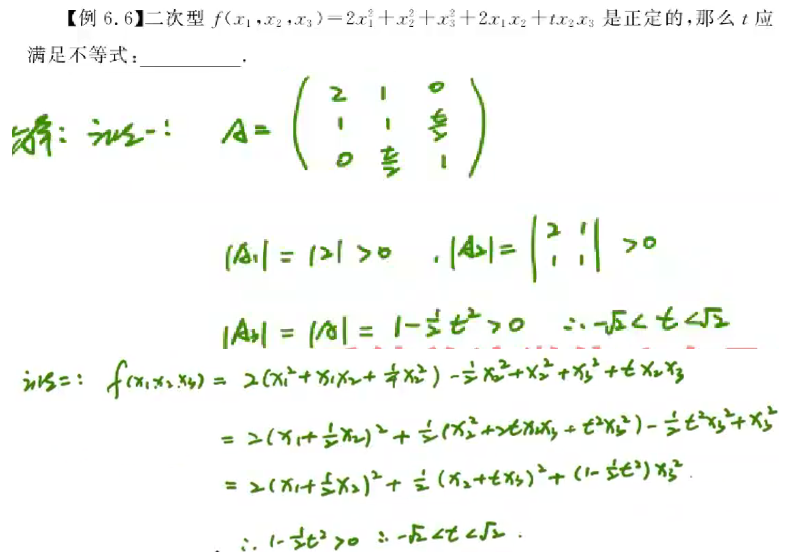 【例 6.6】二次型 f(x₁,x₂,x₃)=2x₁²+x₂²+x₃²+2x₁x₂+tx₂x₃ 是正定的,那么 t 应
满足不等式:__________.
解: 法一: A = ( 2 1 0
1 1 t/2
0 t/2 1 )
|A₁| = |2| > 0 , |A₂| = | 2 1
1 1 | > 0
|A₃| = |A| = 1 - ½t² > 0 ∴ -√2 < t < √2
法二: f(x₁x₂x₃) = 2(x₁² + x₁x₂ + ¼x₂²) - ½x₂² + x₂² + x₃² + tx₂x₃
= 2(x₁ + ½x₂)² + ½(x₂² + 2tx₂x₃ + t²x₃²) - ½t²x₃² + x₃²
= 2(x₁ + ½x₂)² + ½(x₂ + tx₃)² + (1 - ½t²)x₃².
∴ 1 - ½t² > 0 ∴ -√2 < t < √2 .